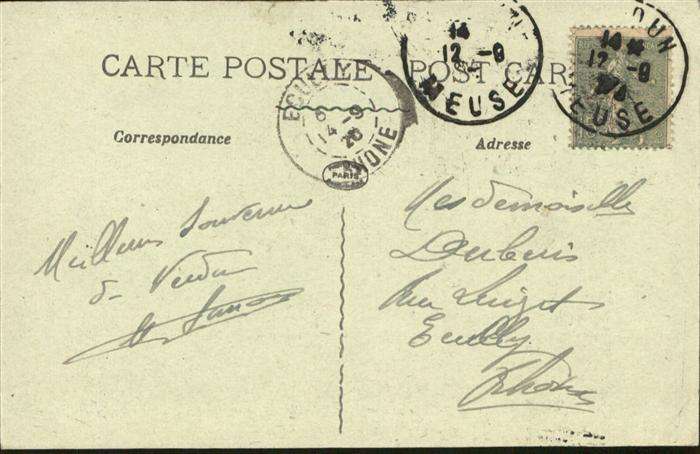 CARTE POSTALE
POST CAR
Correspondance
Adresse
14
12 - 9
MEUSE
DUN
14
12 - 9
MEUSE
ECU
14 - 9
26
PARIS
Meilleurs Souvenirs
de Verdun
Mesdemoiselles
Rue
Ecully
Rhône